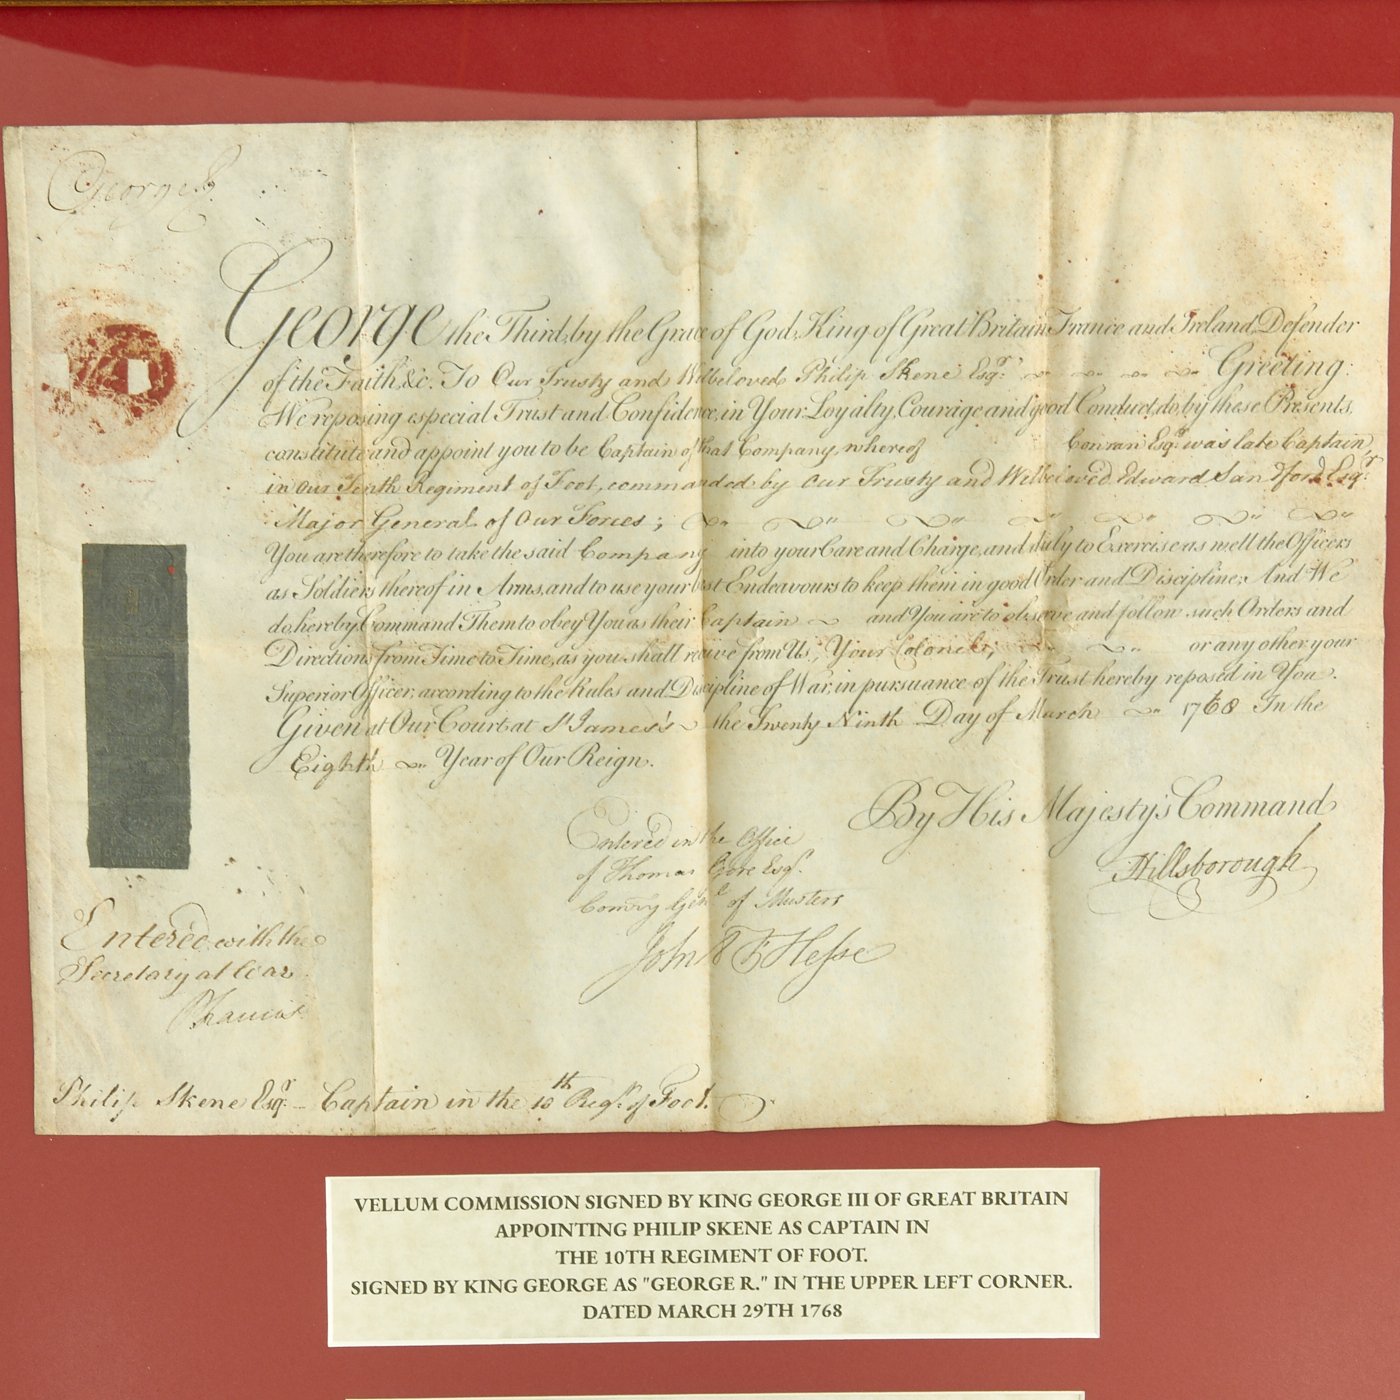 George R
George the Third, by the Grace of God, King of Great Britain, France and Ireland, Defender
of the Faith, &c. To Our Trusty and Welbeloved Philip Skene Esqr. Greeting:
We reposing especial Trust and Confidence, in Your Loyalty, Courage and good Conduct, do, by these Presents,
constitute and appoint you to be Captain of that Company, whereof Conran Esqr. was late Captain,
in Our Tenth Regiment of Foot, commanded by Our Trusty and Welbeloved Edward Sandford Esqr.
Major General of Our Forces;
You are therefore to take the said Company into your Care and Charge, and duly to Exercise as well the Officers
as Soldiers thereof in Arms, and to use your best Endeavours to keep them in good Order and Discipline; And We
do hereby Command Them to obey You as their Captain and You are to observe and follow such Orders and
Directions from Time to Time, as you shall receive from Us, Your Colonel, or any other your
Superior Officer, according to the Rules and Discipline of War, in pursuance of the Trust hereby reposed in You.
Given at Our Court at St. James's the Twenty Ninth Day of March 1768 In the
Eighth Year of Our Reign.
By His Majesty's Command
Hillsborough
Entered in the Office
of Thomas Gore Esqr.
Comry Genl of Musters
John F Hesse
Entered with the
Secretary at War
Philip Skene Esqr. - Captain in the 10th Regt. of Foot.
VELLUM COMMISSION SIGNED BY KING GEORGE III OF GREAT BRITAIN
APPOINTING PHILIP SKENE AS CAPTAIN IN
THE 10TH REGIMENT OF FOOT.
SIGNED BY KING GEORGE AS "GEORGE R." IN THE UPPER LEFT CORNER.
DATED MARCH 29TH 1768